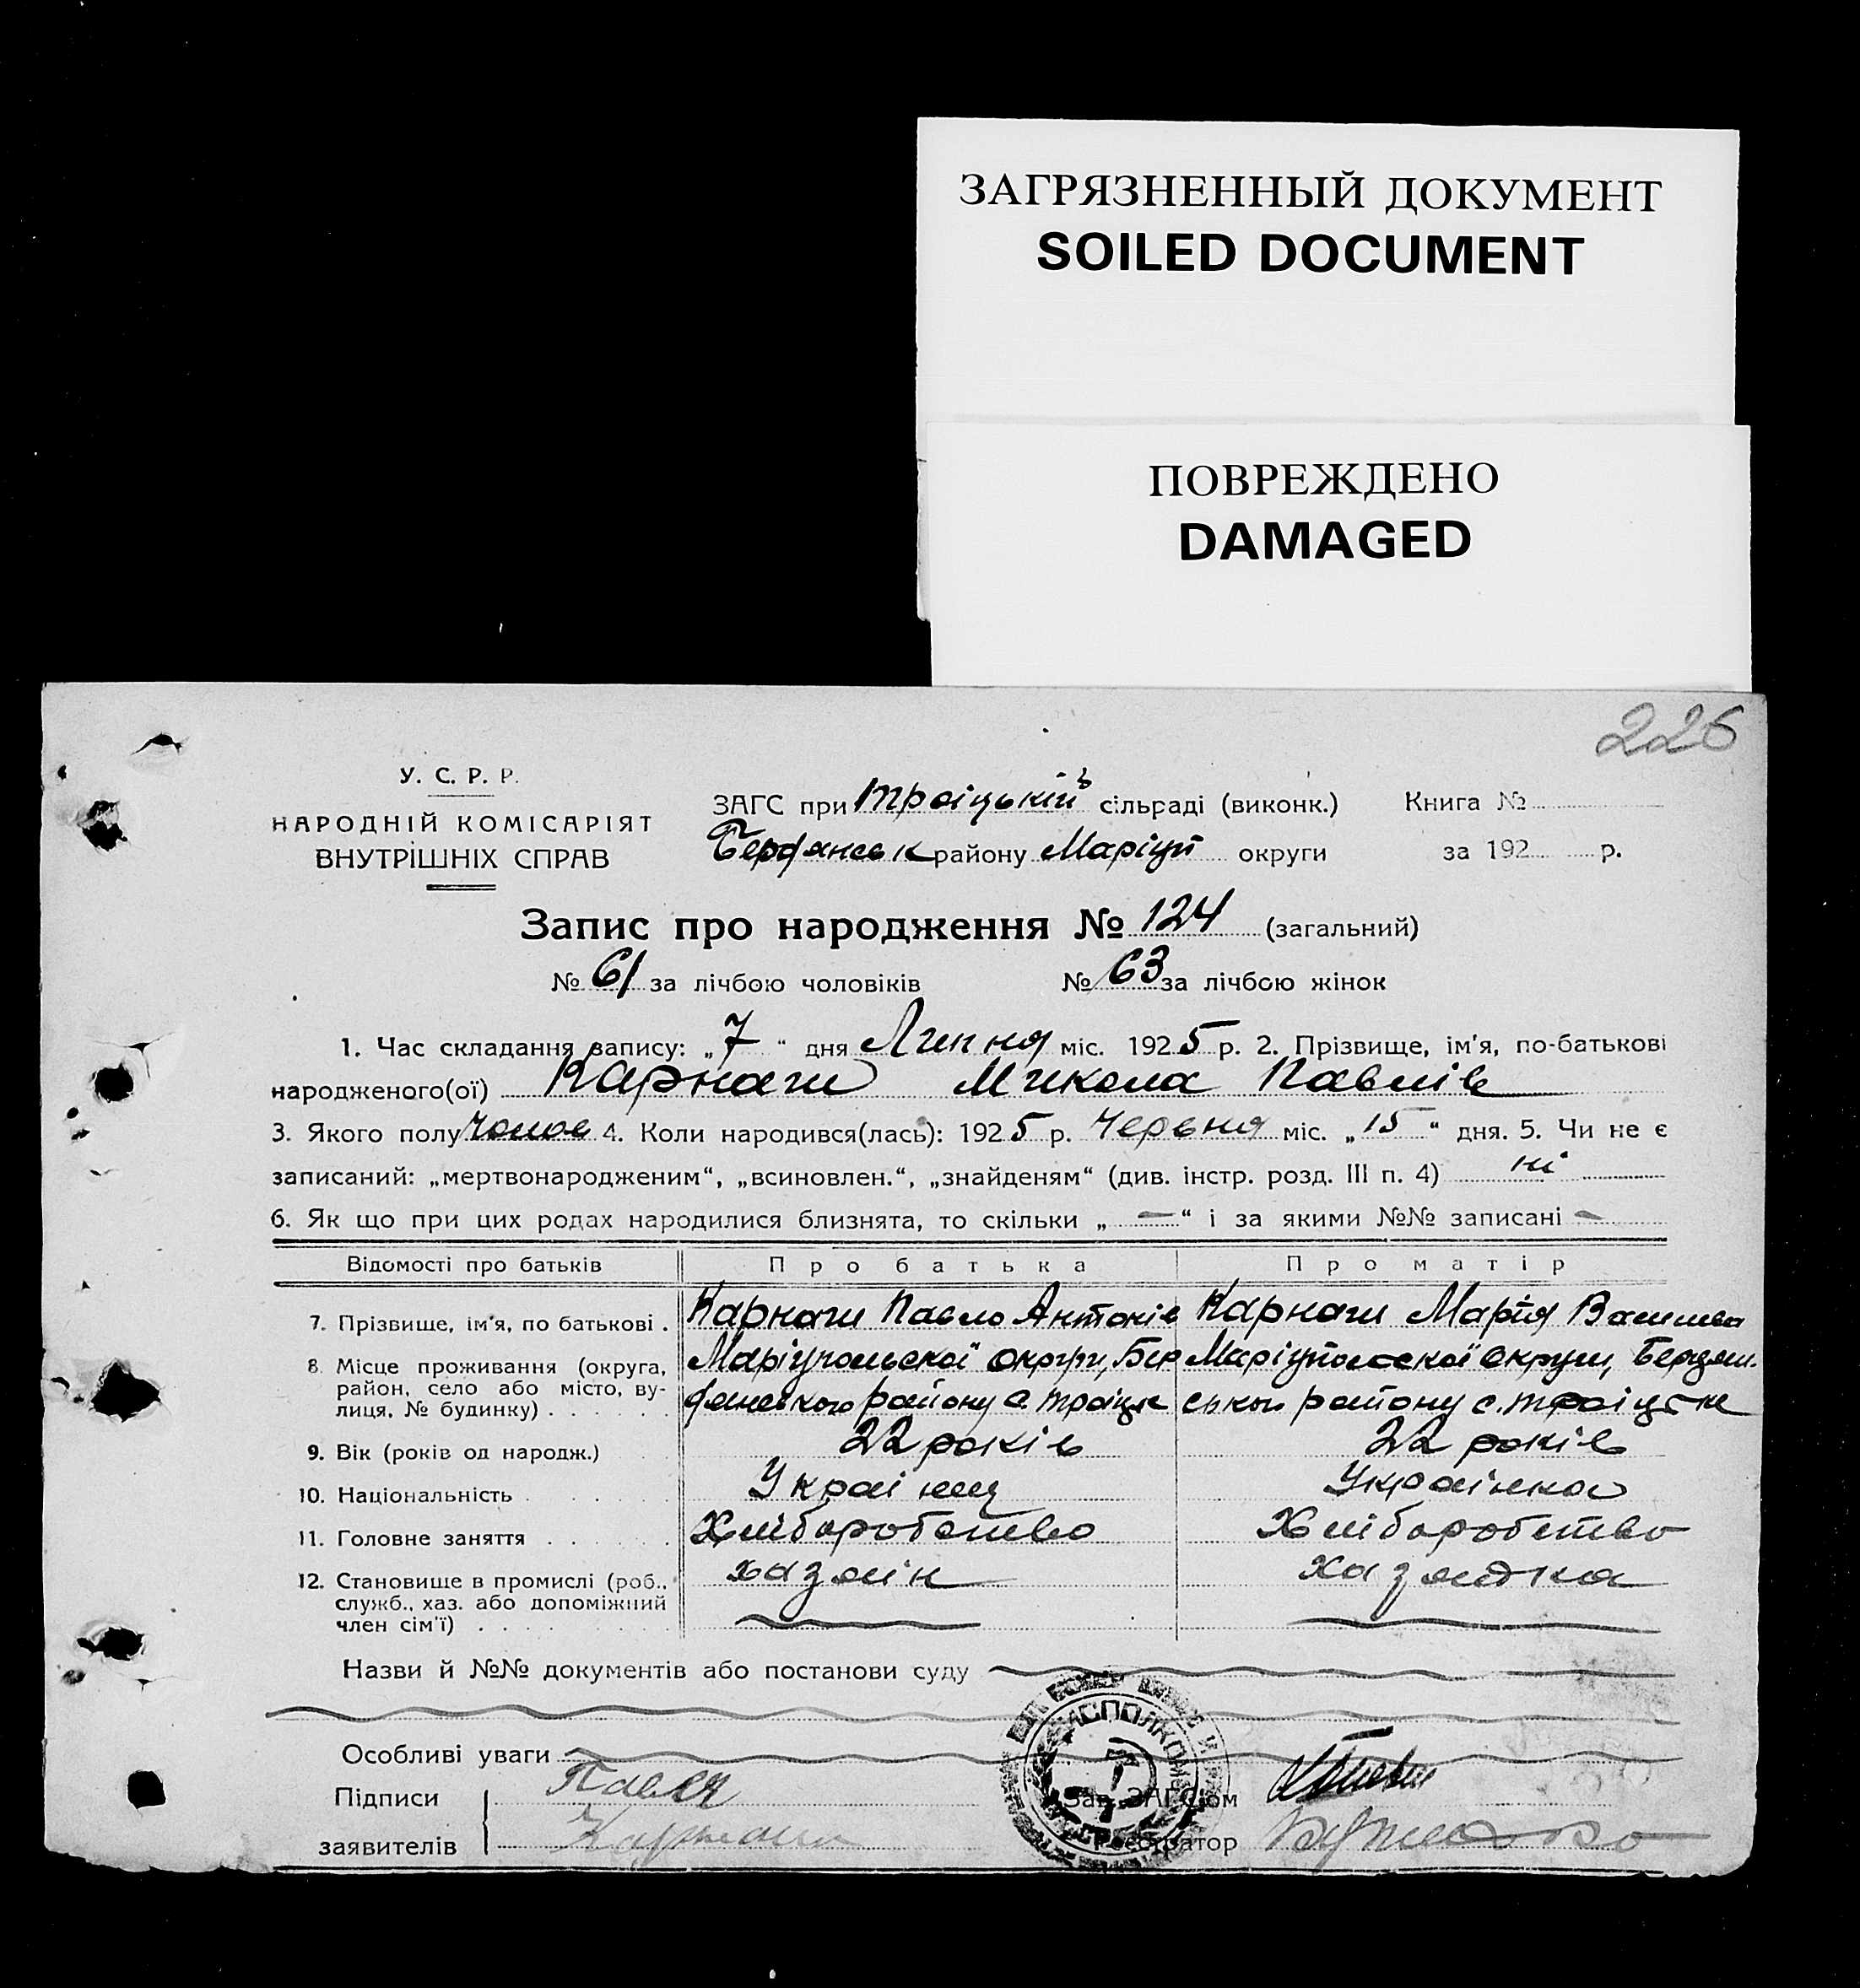 ЗАГРЯЗНЕННЫЙ ДОКУМЕНТ
SOILED DOCUMENT
ПОВРЕЖДЕНО
DAMAGED
226
У. С. Р. Р.
НАРОДНІЙ КОМІСАРІЯТ
ВНУТРІШНІХ СПРАВ
ЗАГС при Троіцькій сільраді (виконк.) Книга №
Бердянськ району Маріуп округи за 192 р.
Запис про народження № 124 (загальний)
№ 61 за лічбою чоловіків № 63 за лічбою жінок
1. Час складання запису: „7“ дня Липня міс. 1925 р. 2. Прізвище, ім'я, по-батькові
народженого(ої) Карнаги Микола Павлів
3. Якого полу Чолов 4. Коли народився(лась): 1925 р. Червня міс. „15“ дня. 5. Чи не є
записаний: „мертвонародженим“, „всиновлен.“, „знайденям“ (див. інстр. розд. III п. 4) ні
6. Як що при цих родах народилися близнята, то скільки „—“ і за якими №№ записані —
Відомості про батьків Про батька Про матір
7. Прізвище, ім'я, по батькові . Карнаги Павло Антонів Карнаги Марія Василева
8. Місце проживання (округа, Маріупольскоі округи, Бер Маріупольскоі округи, Бердян-
район, село або місто, ву-
лиця, № будинку) . . . . . . дянського району с. Троіцьк ського району с. Троіцьке
9. Вік (років од народж.) 22 років 22 років
10. Національність . . . . . Украінец Украінка
11. Головне заняття . . . . . . Хліборобство Хліборобство
12. Становище в промислі (роб., хазяін хазяйка
служб., хаз. або допоміжний
член сім'ї) . . . .
Назви й №№ документів або постанови суду
Особливі уваги
Підписи Павля
заявителів Карнаги
ИСПОЛКОМ
Зав. ЗАГС'ом
Реєстратор